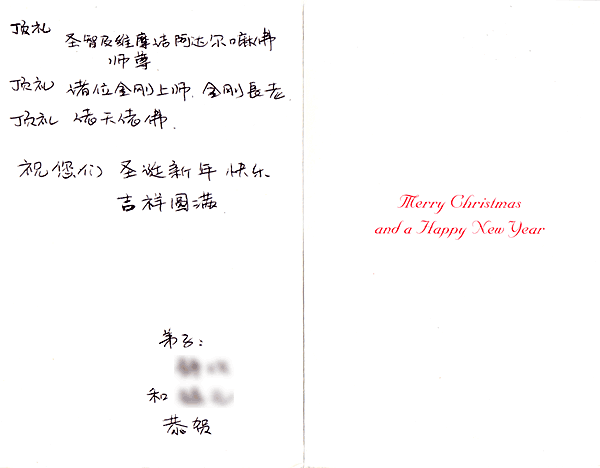 顶礼
圣智及维摩诘阿达尔嘛佛
师尊
顶礼 诸位金刚上师、金刚長老
顶礼 佬天佬佛
祝您们 圣诞新年快乐
吉祥圆满
弟子：
和
恭贺
Merry Christmas
and a Happy New Year